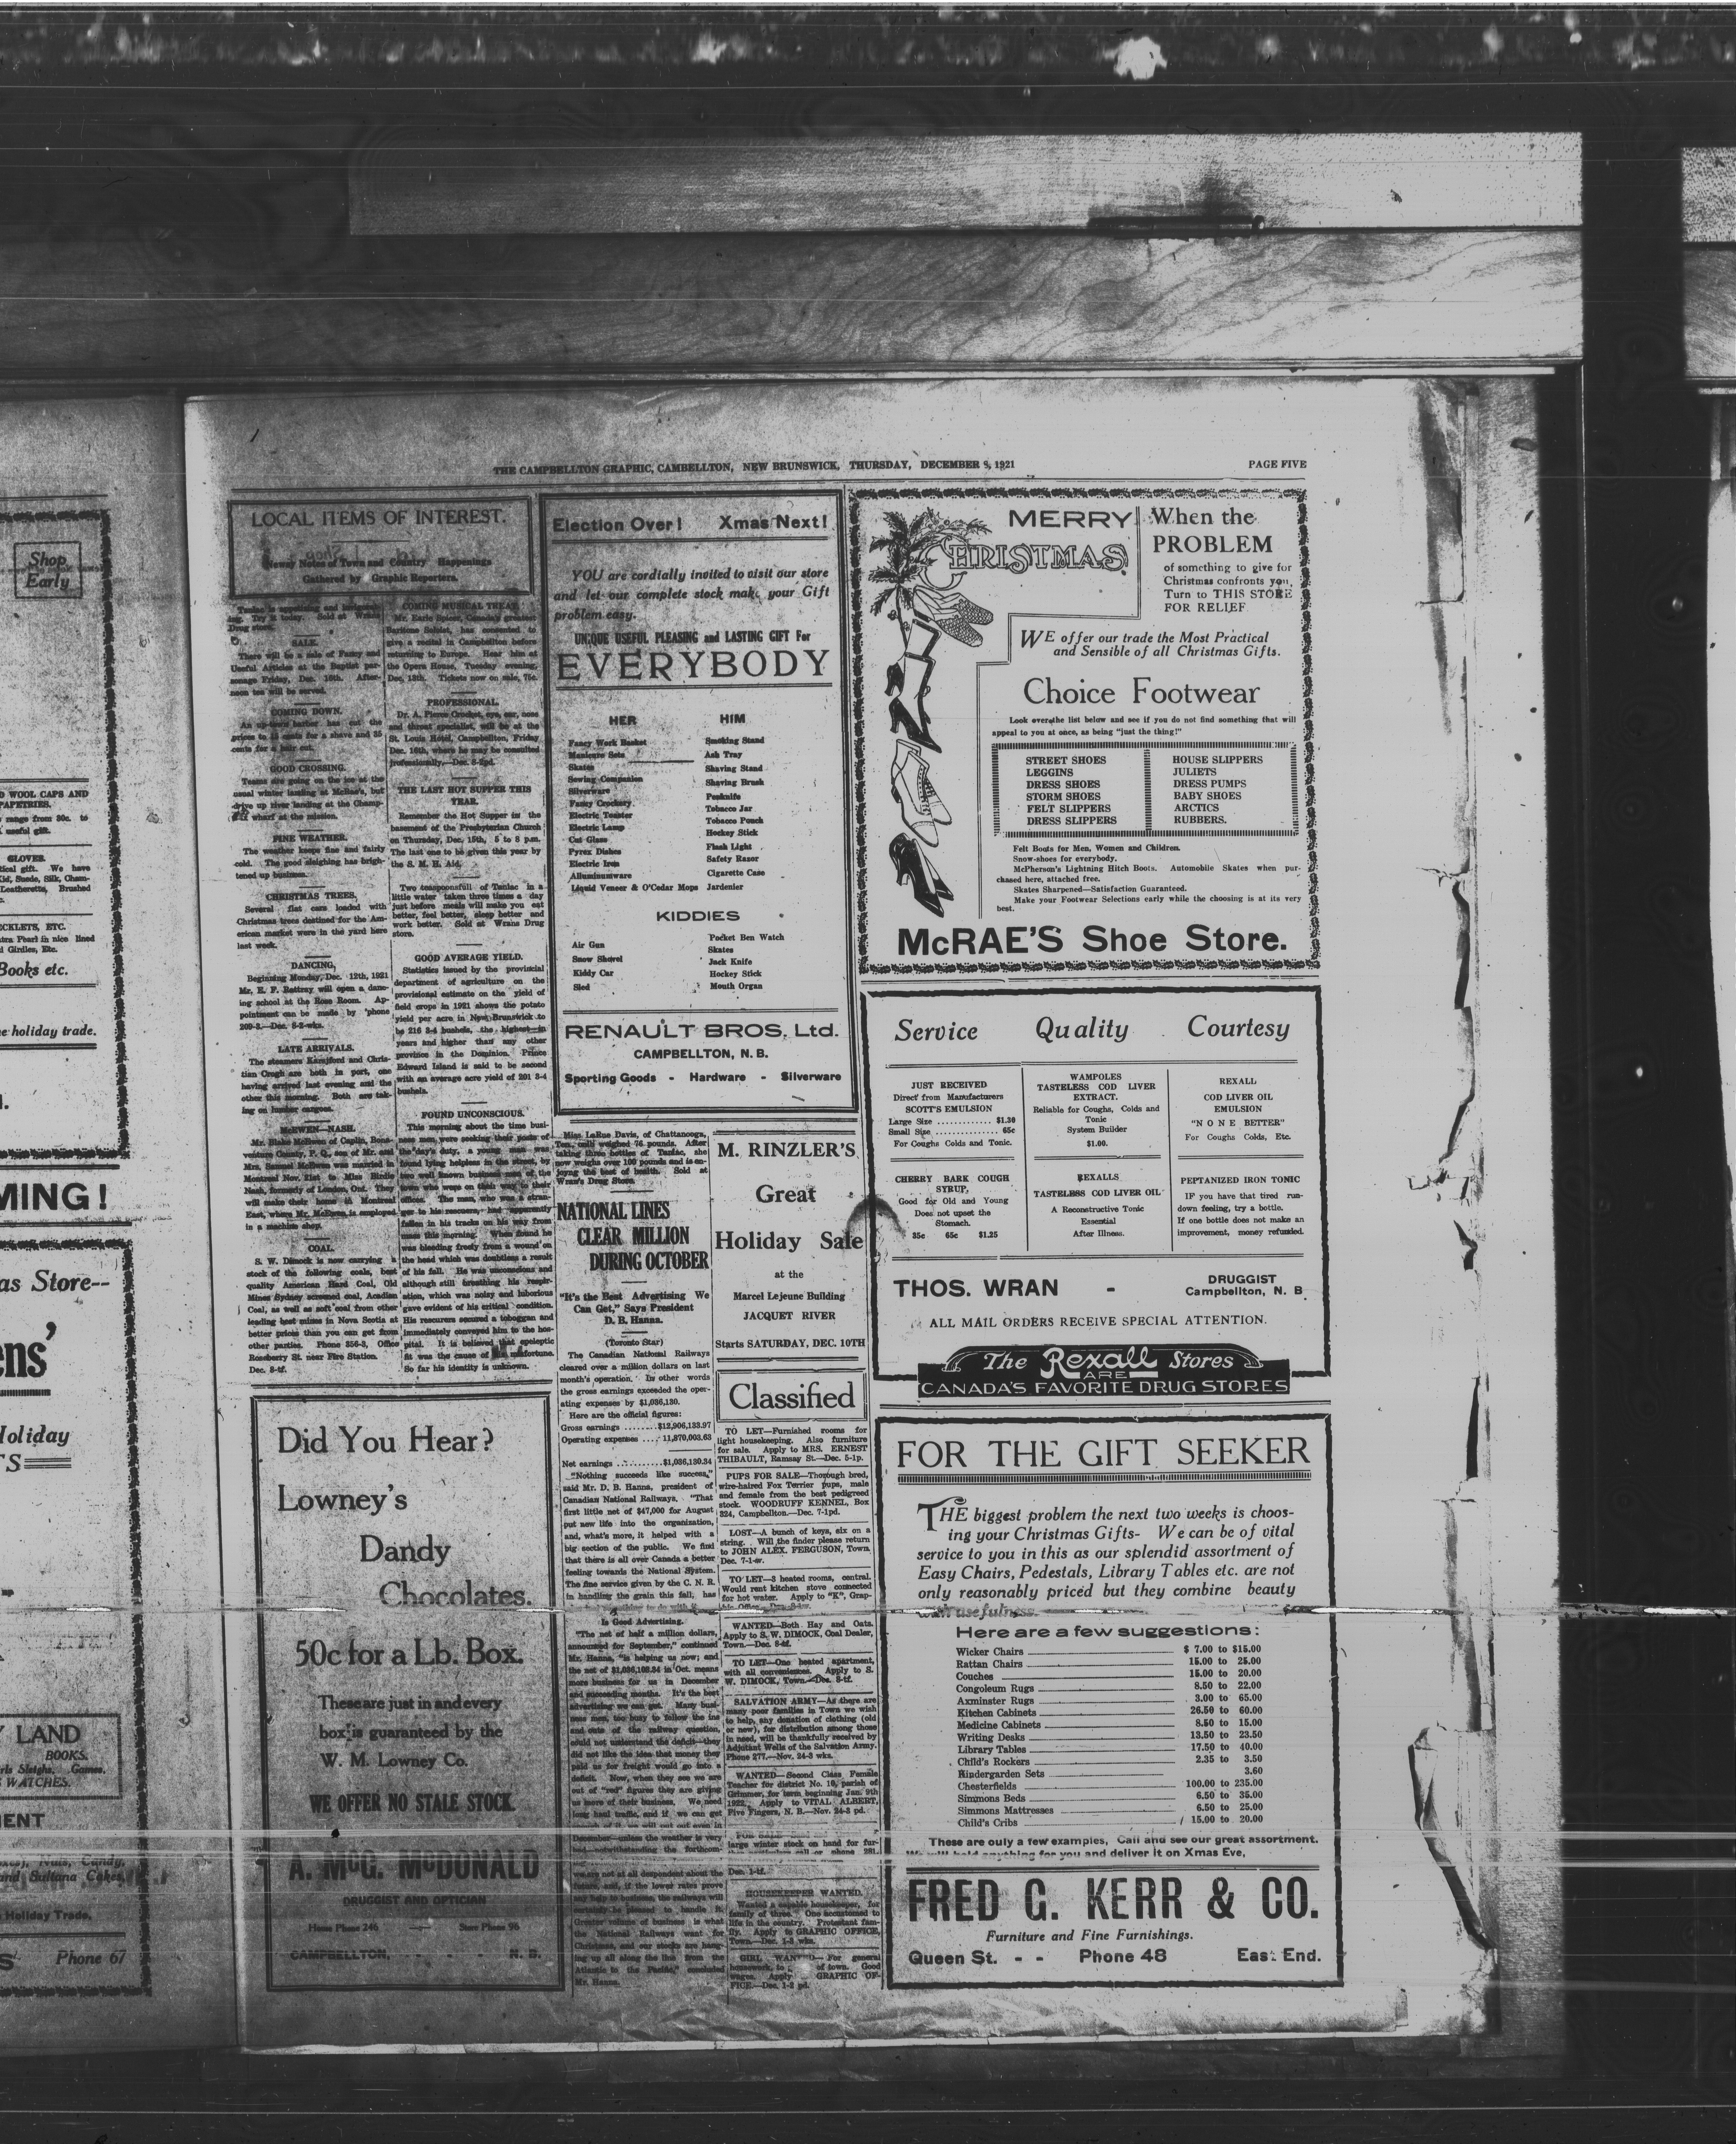 THE CAMPBELLTON GRAPHIC, CAMBELLTON, NEW BRUNSWICK, THURSDAY, DECEMBER 8, 1921
PAGE FIVE
LOCAL ITEMS OF INTEREST.
Newsy Notes of Town and Country Happenings
Gathered by Graphic Reporters.
SALE.
There will be a sale of Fancy and
Useful Articles at the Baptist par-
sonage Friday, Dec. 16th. After-
noon tea will be served.
COMING DOWN.
An up-town barber has cut the
prices to 15 cents for a shave and 35
cents for a hair cut.
GOOD CROSSING.
Teams are going on the ice at the
usual winter landing at McRae's, but
drive up river landing at the Champ-
wharf at the mission.
FINE WEATHER.
The weather keeps fine and fairly
cold. The good sleighing has brigh-
tened up business.
CHRISTMAS TREES.
Several flat cars loaded with
Christmas trees destined for the Am-
erican market were in the yard here
last week.
DANCING,
Beginning Monday, Dec. 12th, 1921
Mr. R. F. Rattray will open a danc-
ing school at the Ross Room. Ap-
pointment can be made by 'phone
209-3.—Dec. 8-2-wks.
LATE ARRIVALS.
The steamers Karsjford and Chris-
tian Crogh are both in port, one
having arrived last evening and the
other this morning. Both are tak-
ing on lumber cargoes.
McEWEN—NASH.
Mr. Blake McEwen of Caplin, Bona-
venture County, P. Q., son of Mr. and
Mrs. Samuel McEwen was married in
Montreal Nov. 21st to Miss Birdie
Nash, formerly of London, Ont. They
will make their home in Montreal
East, where Mr. McEwen is employed
in a machine shop.
COAL.
S. W. Dimock is now carrying a
stock of the following coals, best
quality American Hard Coal, Old
Mines Sydney screened coal, Acadian
Coal, as well as soft coal from other
leading best mines in Nova Scotia at
better prices than you can get from
other parties. Phone 356-3, Office
Roseberry St. near Fire Station.
Dec. 8-tf.
COMING MUSICAL TREAT.
Mr. Earle Spicer, Canada's greatest
Baritone Soloist, has consented to
give a recital in Campbellton before
returning to Europe. Hear him at
the Opera House, Tuesday evening,
Dec. 13th. Tickets now on sale, 75c.
PROFESSIONAL.
Dr. A. Pierce Crocket, eye, ear, nose
and throat specialist, will be at the
St. Louis Hotel, Campbellton, Friday
Dec. 16th, where he may be consulted
professionally.—Dec. 8-2pd.
THE LAST HOT SUPPER THIS
YEAR.
Remember the Hot Supper in the
basement of the Presbyterian Church
on Thursday, Dec. 15th, 5 to 8 p.m.
The last one to be given this year by
the S. M. H. Aid.
Two teaspoonsfull of Tanlac in a
little water taken three times a day
just before meals will make you eat
better, feel better, sleep better and
work better. Sold at Wrans Drug
store.
GOOD AVERAGE YIELD.
Statistics issued by the provincial
department of agriculture on the
provisional estimate on the yield of
field crops in 1921 shows the potato
yield per acre in New Brunswick to
be 216 3-4 bushels, the highest in
years and higher than any other
province in the Dominion. Prince
Edward Island is said to be second
with an average acre yield of 201 3-4
bushels.
FOUND UNCONSCIOUS.
This morning about the time busi-
ness men were seeking their posts of
the day's duty, a young man was
found lying helpless in the street, by
two well known business men of the
town who were on their way to their
offices. The man, who was a stran-
ger to his rescuers, had apparently
fallen in his tracks on his way from
mass this morning. When found he
was bleeding freely from a wound on
the head which was doubtless a result
of his fall. He was unconscious and
although still breathing his respir-
ation, which was noisy and laborious
gave evident of his critical condition.
His rescurers secured a toboggan and
immediately conveyed him to the hos-
pital. It is believed that epeleptic
fit was the cause of his misfortune.
So far his identity is unknown.
Did You Hear?
Lowney's
Dandy
Chocolates.
50c for a Lb. Box.
These are just in and every
box is guaranteed by the
W. M. Lowney Co.
WE OFFER NO STALE STOCK
A. McG. McDONALD
DRUGGIST AND OPTICIAN
House Phone 246 Store Phone 96
CAMPBELLTON, - - - N. B.
Election Over! Xmas Next!
YOU are cordially invited to visit our store
and let our complete stock make your Gift
problem easy.
UNIQUE USEFUL PLEASING and LASTING GIFT For
EVERYBODY
HER
Fancy Work Basket
Manicure Sets
Skates
Sewing Companion
Silverware
Fancy Crockery
Electric Toaster
Electric Lamp
Cut Glass
Pyrex Dishes
Electric Iron
Alluminumware
Liquid Veneer & O'Cedar Mops
HIM
Smoking Stand
Ash Tray
Shaving Stand
Shaving Brush
Penknife
Tobacco Jar
Tobacco Pouch
Hockey Stick
Flash Light
Safety Razor
Cigarette Case
Jardenier
KIDDIES
Air Gun
Snow Shovel
Kiddy Car
Sled
Pocket Ben Watch
Skates
Jack Knife
Hockey Stick
Mouth Organ
RENAULT BROS, Ltd.
CAMPBELLTON, N. B.
Sporting Goods - Hardware - Silverware
Miss LaRue Davis, of Chattanooga,
Ten., only weighed 76 pounds. After
taking three bottles of Tanlac, she
now weighs over 100 pounds and is en-
joying the best of health. Sold at
Wran's Drug Store.
NATIONAL LINES
CLEAR MILLION
DURING OCTOBER
"It's the Best Advertising We
Can Get," Says President
D. B. Hanna.
(Toronto Star)
The Canadian National Railways
cleared over a million dollars on last
month's operation. In other words
the gross earnings exceeded the oper-
ating expenses by $1,036,130.
Here are the official figures:
Gross earnings ........$12,906,133.97
Operating expenses .... 11,870,003.63
Net earnings ..........$1,036,130.34
"Nothing succeeds like success,"
said Mr. D. B. Hanna, president of
Canadian National Railways. "That
first little net of $47,000 for August
put new life into the organization,
and, what's more, it helped with a
big section of the public. We find
that there is all over Canada a better
feeling towards the National System.
The fine service given by the C. N. R.
in handling the grain this fall, has
Is Good Advertising.
"The net of half a million dollars,
announced for September," continued
Mr. Hanna, "is helping us now; and
the net of $1,036,103.34 in Oct. means
more business for us in December
and succeeding months. It's the best
advertising we can get. Many busi-
ness men, too busy to follow the ins
and outs of the railway question,
could not understand the deficit—they
did not like the idea that money they
paid us for freight would go into a
deficit. Now, when they see we are
out of "red" figures they are giving
us more of their business. We need
long haul traffic, and if we can get
December—unless the weather is very
bad—notwithstanding the forthcom-
we are not at all despondent about the
future, and, if the lower rates prove
any help to business, the railways will
certainly be pleased to handle it.
Greater volume of business is what
the National Railways want for
Christmas, and our stocks are hang-
ing up all along the line from the
Atlantic to the Pacific," concluded
Mr. Hanna.
M. RINZLER'S
Great
Holiday Sale
at the
Marcel Lejeune Building
JACQUET RIVER
Starts SATURDAY, DEC. 10TH
Classified
TO LET—Furnished rooms for
light housekeeping. Also furniture
for sale. Apply to MRS. ERNEST
THIBAULT, Ramsay St.—Dec. 5-1p.
PUPS FOR SALE—Thorough bred,
wire-haired Fox Terrier pups, male
and female from the best pedigreed
stock. WOODRUFF KENNEL, Box
324, Campbellton.—Dec. 7-1pd.
LOST—A bunch of keys, six on a
string. Will the finder please return
to JOHN ALEX. FERGUSON, Town.
Dec. 7-1-w.
TO LET—3 heated rooms, central.
Would rent kitchen stove connected
for hot water. Apply to "K", Grap-
WANTED—Both Hay and Oats.
Apply to S. W. DIMOCK, Coal Dealer,
Town.—Dec. 8-tf.
TO LET—One heated apartment,
with all conveniences. Apply to S.
W. DIMOCK, Town.—Dec. 8-tf.
SALVATION ARMY—As there are
many poor families in Town we wish
to help, any donation of clothing (old
or new), for distribution among those
in need, will be thankfully received by
Adjutant Wells of the Salvation Army.
Phone 277.—Nov. 24-3 wks.
WANTED—Second Class Female
Teacher for district No. 10, parish of
Grimmer, for term beginning Jan. 9th
1922. Apply to VITAL ALBERT,
Five Fingers, N. B.—Nov. 24-3 pd.
large winter stock on hand for fur-
Dec. 1-tf.
HOUSEKEEPER WANTED.
Wanted a capable housekeeper, for
family of three. One accustomed to
life in the country. Protestant fam-
ily. Apply to GRAPHIC OFFICE,
Town.—Dec. 1-3 wks.
GIRL WANTED—For general
housework, to of town. Good
wages. Apply GRAPHIC OF-
FICE.—Dec. 1-2 pd.
MERRY
CHRISTMAS
When the
PROBLEM
of something to give for
Christmas confronts you,
Turn to THIS STORE
FOR RELIEF
WE offer our trade the Most Practical
and Sensible of all Christmas Gifts.
Choice Footwear
Look over the list below and see if you do not find something that will
appeal to you at once, as being "just the thing!"
STREET SHOES
LEGGINS
DRESS SHOES
STORM SHOES
FELT SLIPPERS
DRESS SLIPPERS
HOUSE SLIPPERS
JULIETS
DRESS PUMPS
BABY SHOES
ARCTICS
RUBBERS.
Felt Boots for Men, Women and Children.
Snow-shoes for everybody.
McPherson's Lightning Hitch Boots. Automobile Skates when pur-
chased here, attached free.
Skates Sharpened—Satisfaction Guaranteed.
Make your Footwear Selections early while the choosing is at its very
best.
McRAE'S Shoe Store.
Service Quality Courtesy
JUST RECEIVED
Direct from Manufacturers
SCOTT'S EMULSION
Large Size ............. $1.30
Small Size ............. 65c
For Coughs Colds and Tonic.
WAMPOLES
TASTELESS COD LIVER
EXTRACT.
Reliable for Coughs, Colds and
Tonic
System Builder
$1.00.
REXALL
COD LIVER OIL
EMULSION
"NONE BETTER"
For Coughs Colds, Etc.
CHERRY BARK COUGH
SYRUP,
Good for Old and Young
Does not upset the
Stomach.
35c 65c $1.25
REXALLS
TASTELESS COD LIVER OIL
A Reconstructive Tonic
Essential
After Illness.
PEPTANIZED IRON TONIC
IF you have that tired run-
down feeling, try a bottle.
If one bottle does not make an
improvement, money refunded.
THOS. WRAN -
DRUGGIST
Campbellton, N. B
ALL MAIL ORDERS RECEIVE SPECIAL ATTENTION.
The Rexall Stores
ARE
CANADA'S FAVORITE DRUG STORES
FOR THE GIFT SEEKER
THE biggest problem the next two weeks is choos-
ing your Christmas Gifts- We can be of vital
service to you in this as our splendid assortment of
Easy Chairs, Pedestals, Library Tables etc. are not
only reasonably priced but they combine beauty
with usefulness.
Here are a few suggestions:
Wicker Chairs $ 7.00 to $15.00
Rattan Chairs 15.00 to 25.00
Couches 15.00 to 20.00
Congoleum Rugs 8.50 to 22.00
Axminster Rugs 3.00 to 65.00
Kitchen Cabinets 26.50 to 60.00
Medicine Cabinets 8.50 to 15.00
Writing Desks 13.50 to 23.50
Library Tables 17.50 to 40.00
Child's Rockers 2.35 to 3.50
Kindergarden Sets 3.60
Chesterfields 100.00 to 235.00
Simmons Beds 6.50 to 35.00
Simmons Mattresses 6.50 to 25.00
Child's Cribs 15.00 to 20.00
These are only a few examples, Call and see our great assortment.
We will hold anything for you and deliver it on Xmas Eve,
FRED G. KERR & CO.
Furniture and Fine Furnishings.
Queen St. - - Phone 48 East End.
Shop
Early
WOOL CAPS AND
PAPETRIES.
range from 30c. to
useful gift.
GLOVES.
tical gift. We have
Kid, Suede, Silk, Cham-
Leatherette, Brushed
ECKLETS, ETC.
Pearl in nice lined
Girdles, Etc.
Books etc.
e holiday trade.
MING!
as Store--
ens'
Holiday
TS
Y LAND
BOOKS.
Sleighs. Games.
WATCHES.
MENT
Nuts, Candy,
and Sultana Cakes,
Holiday Trade.
Phone 67